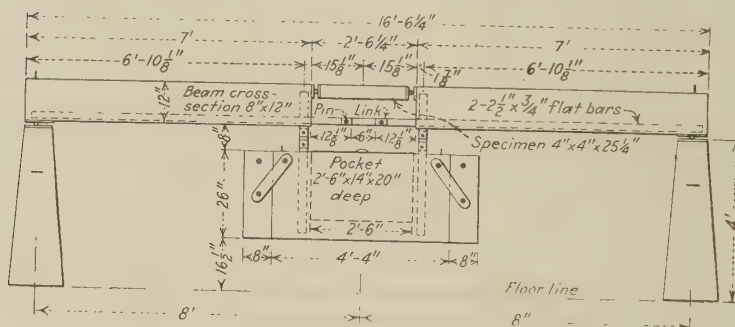 16'-6 1/4"
7'
2'-6 1/4"
7'
6'-10 1/8"
15 1/8"
15 1/8"
1 1/8"
6'-10 1/8"
12"
Beam cross-
section 8"x12"
2-2 1/2" x 3/4" flat bars
Pin
Link
12 1/8"
6"
12 1/8"
Specimen 4"x4"x25 1/4"
8"
Pocket
2'-6"x14"x20"
deep
26"
4'
2'-6"
16 1/2"
8"
4'-4"
8"
Floor line
8'
8"